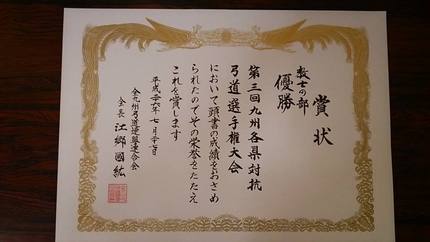 賞状
教士の部
優勝
第三回九州各県対抗
弓道選手権大会
において頭書の成績をおさめ
られたのでその栄誉をたたえ
これを賞します
全九州弓道連盟連合会
会長 江郷國紘